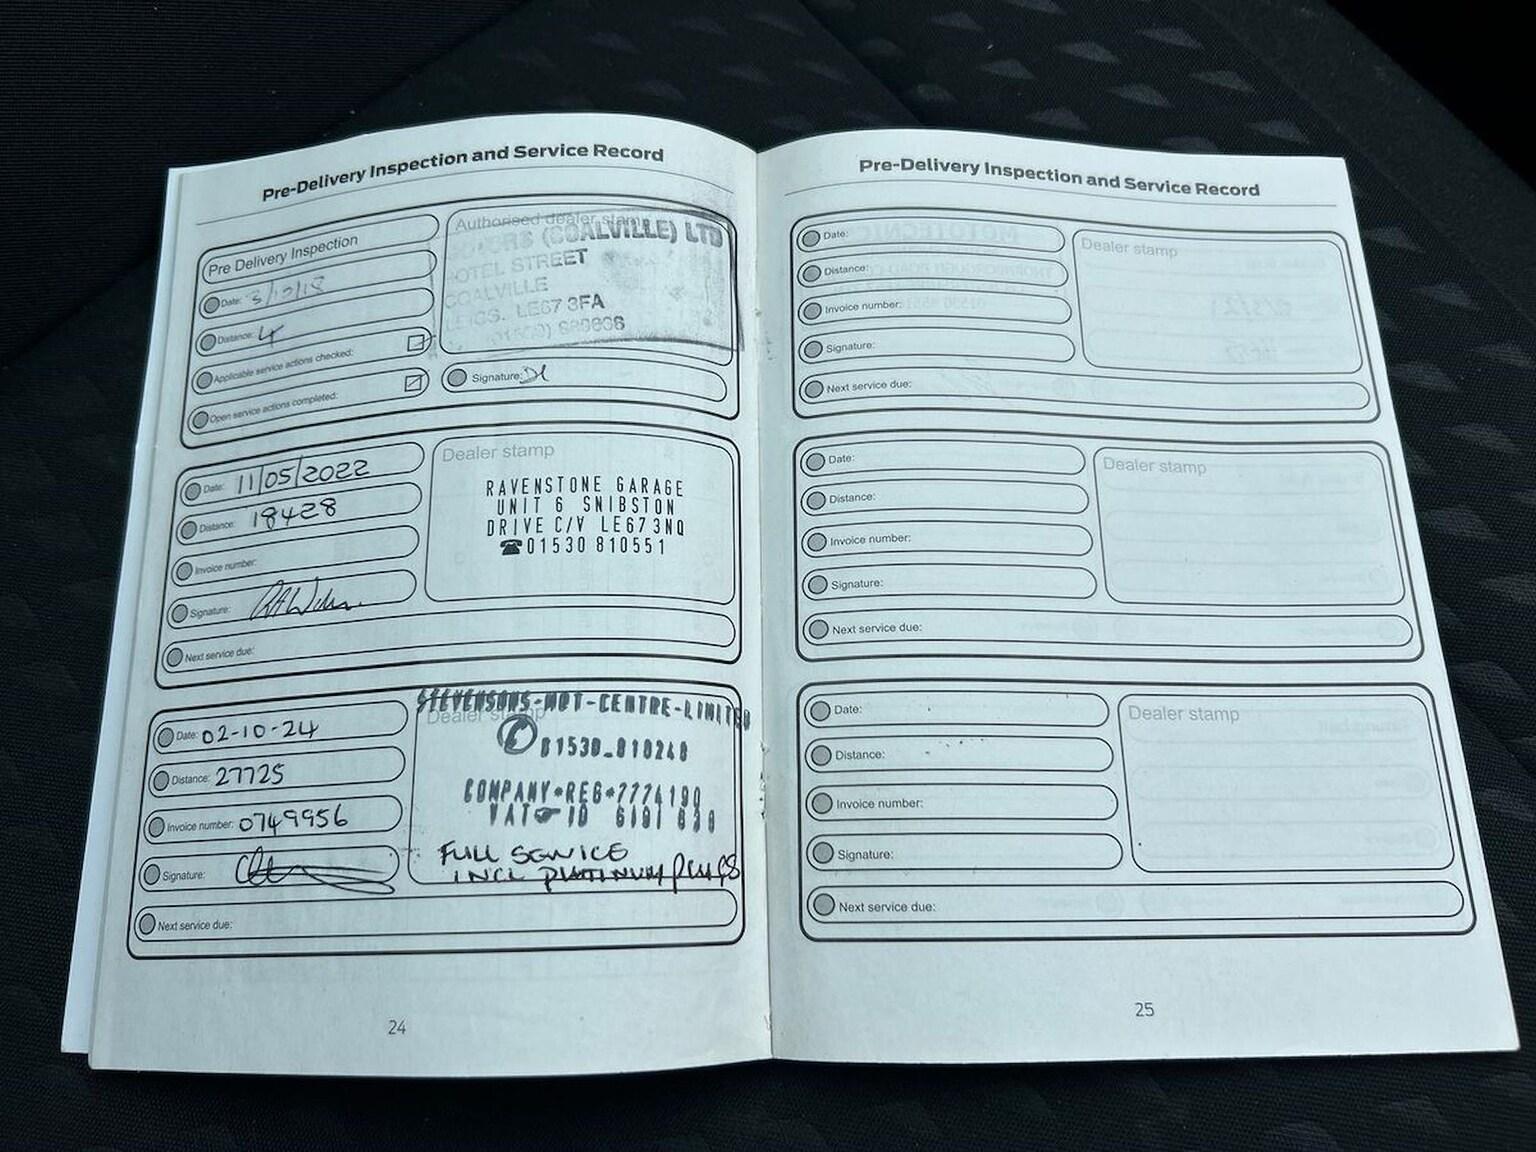 Pre-Delivery Inspection and Service Record
Pre Delivery Inspection
Date: 3/12/18
Distance: 4
Applicable service actions checked:
Open service actions completed:
Authorised dealer stamp
(COALVILLE) LTD
HOTEL STREET
COALVILLE
LEICS. LE67 3FA
Signature:
Date: 11/05/2022
Distance: 18428
Invoice number:
Signature:
Next service due:
Dealer stamp
RAVENSTONE GARAGE
UNIT 6 SNIBSTON
DRIVE C/V LE673NQ
☎01530 810551
Date: 02-10-24
Distance: 27725
Invoice number: 0749956
Signature:
Next service due:
Dealer stamp
STEVENSONS-MOT-CENTRE-LIMITED
01530-810248
COMPANY*REG*7774190
VAT ID 6191 630
FULL SERVICE
INCL PLATINUM PLUGS
24
Pre-Delivery Inspection and Service Record
Date:
Distance:
Invoice number:
Signature:
Next service due:
Dealer stamp
Date:
Distance:
Invoice number:
Signature:
Next service due:
Dealer stamp
Date:
Distance:
Invoice number:
Signature:
Next service due:
Dealer stamp
25